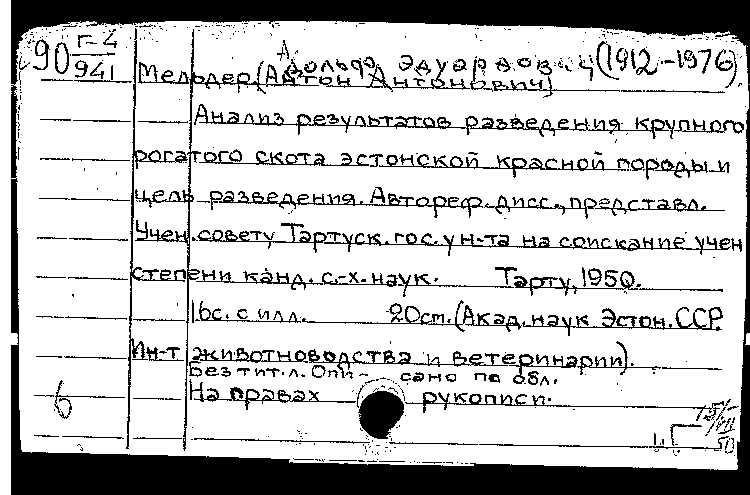 90 Г-4/941
Адольф Эдуардович (1912-1976)
Мельдер (Антон Антонович)
Анализ результатов разведения крупного
рогатого скота эстонской красной породы и
цель разведения. Автореф. дисс., представл.
Учен. совету Тартуск. гос. ун-та на соискание учен
степени канд. с.-х. наук. Тарту, 1950.
16с. с илл. 20 см. (Акад. наук Эстон. ССР.
Ин-т животноводства и ветеринарии).
Без тит. л. Опи- сано по обл.
На правах рукописи.
6
15/VII
50